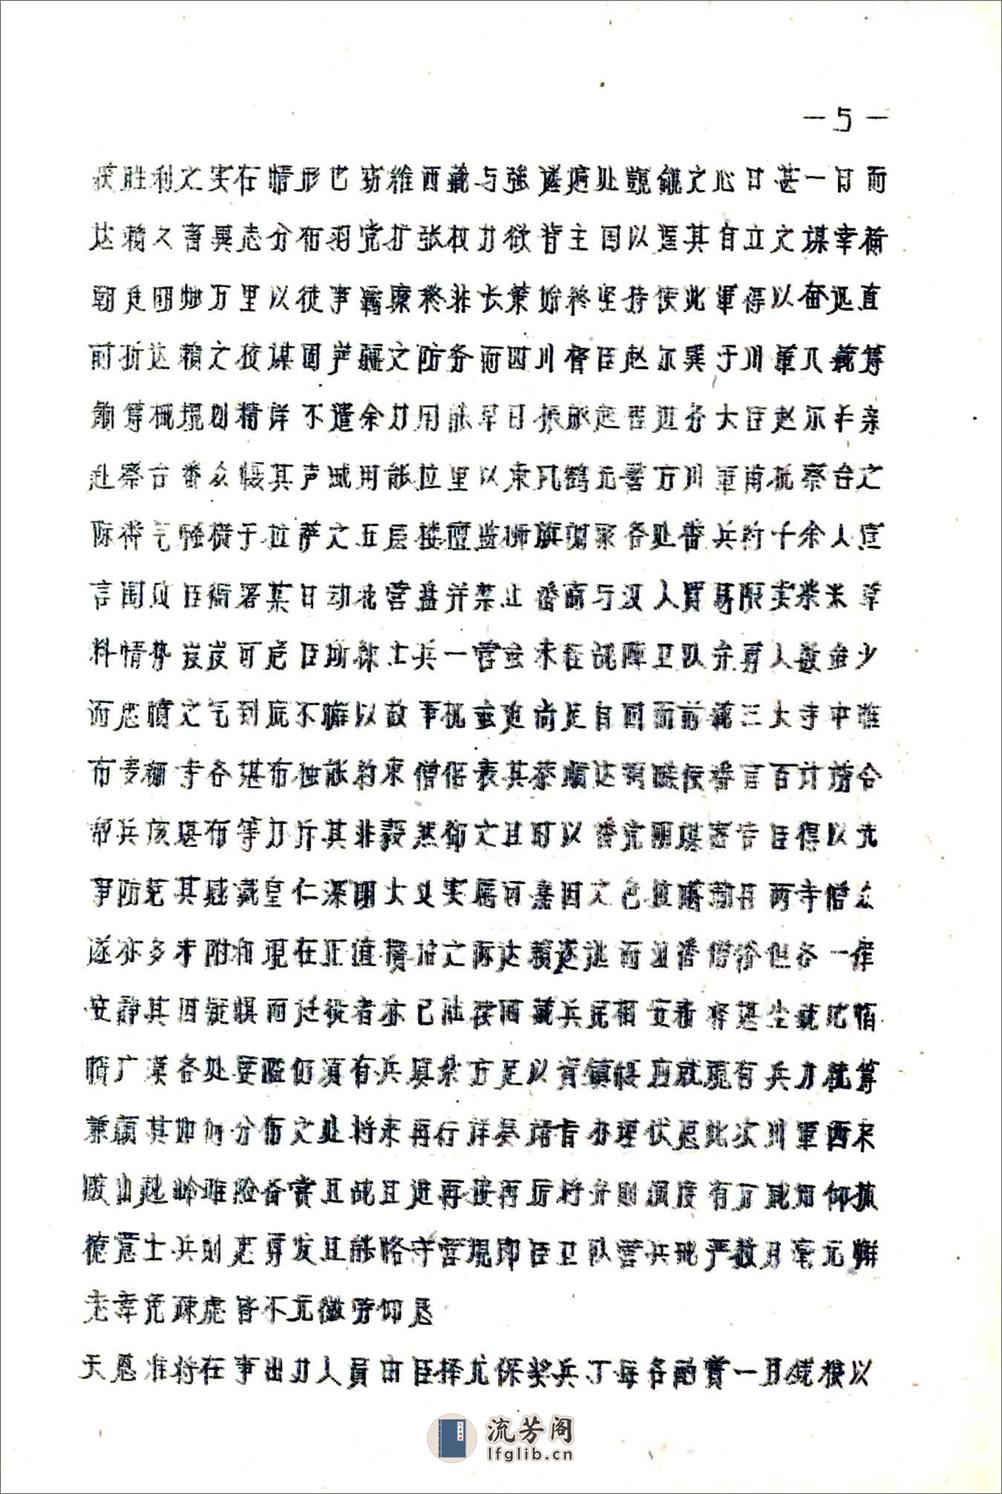 —5—
获胜利之实在情形也窃维西藏与强邻逼处觊觎之心日甚一日而
达赖久蓄异志分布羽党扩张权力欲背主国以逞其自立之谋幸荷
朝廷明烛万里以徒事羁縻终非长策始终坚持使此军得以奋迅直
前折达赖之狡谋固岩疆之防务而四川督臣赵尔巽于川军入藏筹
饷筹械规划精详不遗余力用能早日振旅起程边务大臣赵尔丰亲
赴察台番众慑其声威用能拉里以东风鹤无警方川军南抵察台之
际番气极横于拉萨之五层楼 旗调聚各处番兵约千余人宣
言围攻臣衙署某日动抢营盘并禁止番商与汉人贸易限卖柴米草
料情势岌岌可危臣所练土兵一营虽未经战阵卫队弁勇人数虽少
而忠愤之气到底不懈以故事机虽迫尚足自固而前藏三大寺中唯
布麦绷寺各堪布独能约束僧俗表其恭顺达赖 使番官百计胁令
帮兵该堪布等力斥其非毅然 之且时以番党阴谋密告臣得以先
事防范其感戴皇仁深明大义实属可嘉因之色拉噶勒丹两寺僧众
遂亦多未附和现在正值 之际达赖逐逃而汉番僧俗但各一律
安静其因疑惧而迁徙者亦已陆续回藏兵民相安
情广漠各处要隘仍须有兵填扎方足以资镇慑应就现有兵力统筹
兼顾其如何分布之处将来再行详奏请旨办理伏思此次川军西来
陟山越岭难险备尝且战且进再接再厉将弁则 度有方咸知仰体
德意士兵则忠勇奋发且能恪守营规即臣卫队营兵戒严数月毫无懈
志幸免疏虞皆不无微劳仰恳
天恩准将在事出力人员由臣择尤保奖兵丁每名酌赏一月钱粮以
流芳阁
lfglib.cn